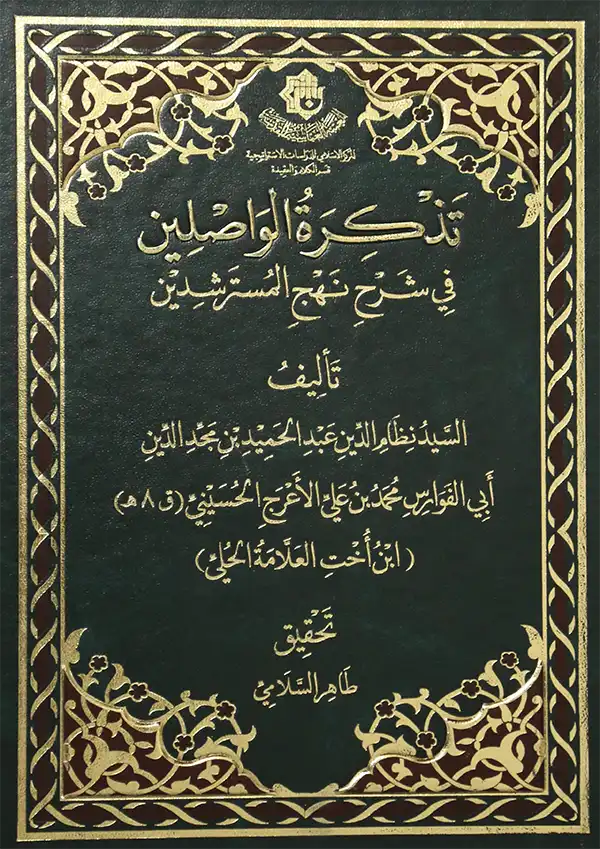 العتبة العباسية المقدسة
المركز الإسلامي للدراسات الاستراتيجية
قسم الكلام والعقيدة
تَذْكِرَةُ الوَاصْلِين
فِي شَرْحِ نَهْجِ المُسترَشِدِيْن
تَأليفُ
السَّيِّدُ نِظَامِ الدِّينِ عَبْدِ الحَمِيْدِ بْنِ مَجْدِ الدِّينِ
أَبِي الفَوَارِسِ مُحَمَّدُ بْنُ عَلِيِّ الأَعْرَجِ الحُسَيْنِيِّ (ق ٨ هـ)
(ابْنُ أُخْتِ العَلَّامَةُ الحُلِّيِّ)
تَحْقِيق
طَاهِر السَّلَامِيّ